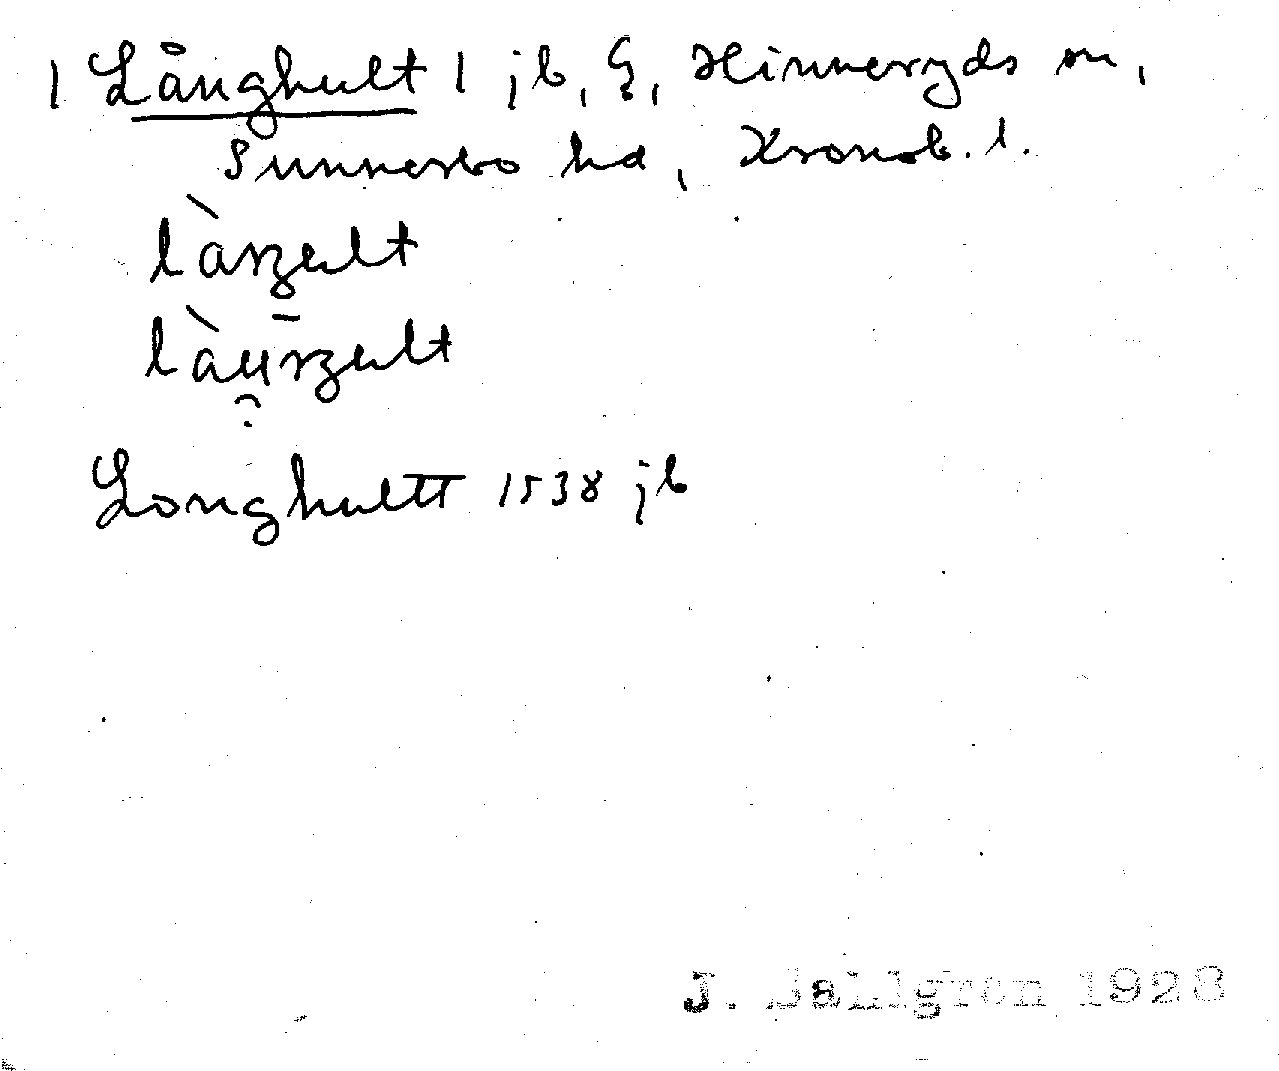 | Långhult | jb, G, Hinneryds sn,
Sunnerbo hd, Kronob. l.
làŋult
làuŋult
?
Longhultt 1538 jb
J. Sahlgren 1928